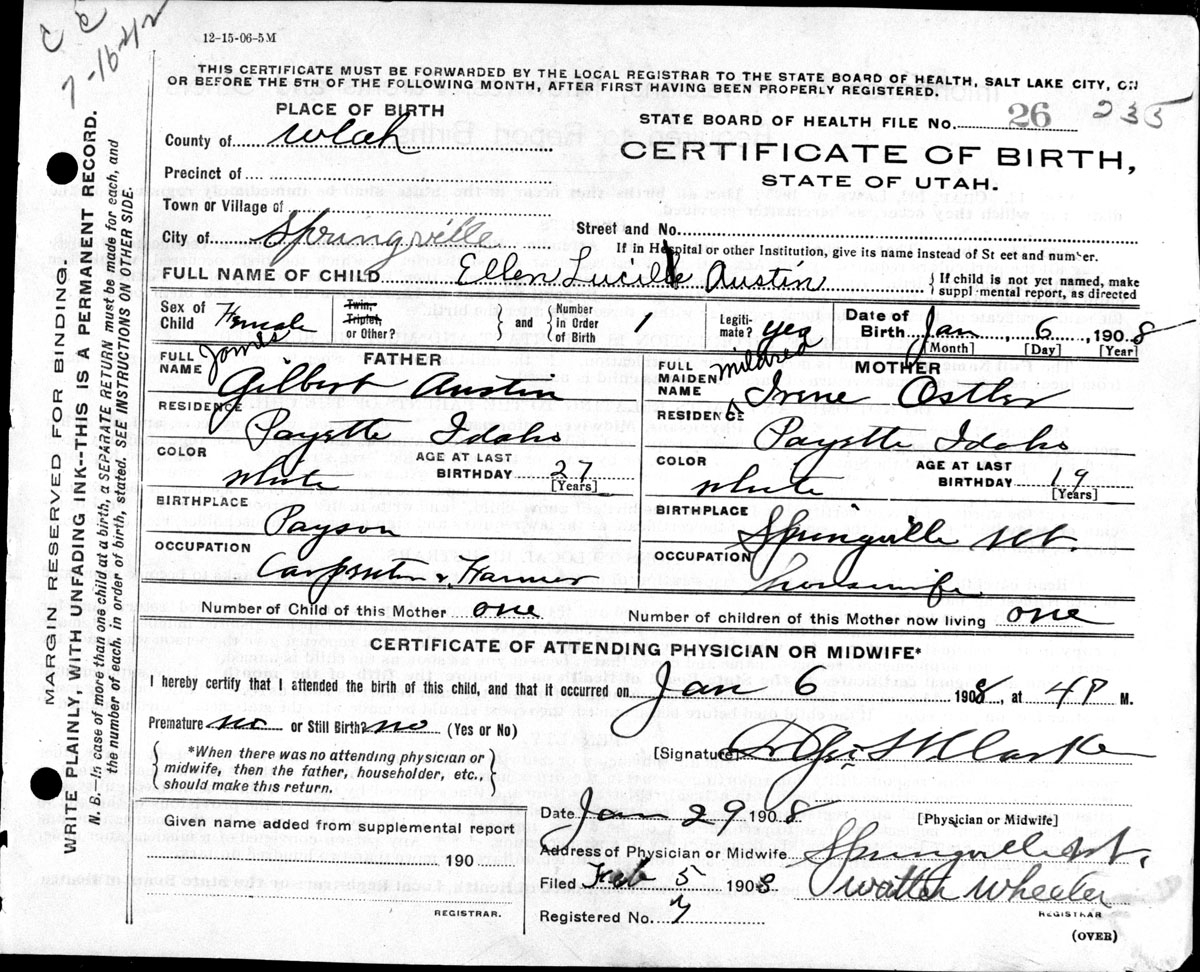 C C
7-16-42
12-15-06-5M
THIS CERTIFICATE MUST BE FORWARDED BY THE LOCAL REGISTRAR TO THE STATE BOARD OF HEALTH, SALT LAKE CITY, ON
OR BEFORE THE 5TH OF THE FOLLOWING MONTH, AFTER FIRST HAVING BEEN PROPERLY REGISTERED.
PLACE OF BIRTH
County of Utah
Precinct of
Town or Village of
City of Springville
STATE BOARD OF HEALTH FILE No. 26 235
CERTIFICATE OF BIRTH,
STATE OF UTAH.
Street and No.
If in Hospital or other Institution, give its name instead of St eet and number.
FULL NAME OF CHILD Ellen Lucile Austin
If child is not yet named, make
suppl mental report, as directed
Sex of Child Female
Twin, Triplet, or Other?
and Number in Order of Birth 1
Legitimate? yes
Date of Birth Jan 6 1908
[Month] [Day] [Year]
FATHER
FULL NAME James Gilbert Austin
RESIDENCE Payette Idaho
COLOR white
AGE AT LAST BIRTHDAY 27 [Years]
BIRTHPLACE Payson
OCCUPATION Carpenter & Farmer
MOTHER
FULL MAIDEN NAME Mildred Irene Ostler
RESIDENCE Payette Idaho
COLOR white
AGE AT LAST BIRTHDAY 19 [Years]
BIRTHPLACE Springville Ut.
OCCUPATION housewife
Number of Child of this Mother one
Number of children of this Mother now living one
CERTIFICATE OF ATTENDING PHYSICIAN OR MIDWIFE*
I hereby certify that I attended the birth of this child, and that it occurred on Jan 6 1908, at 4 P M.
Premature no or Still Birth no (Yes or No)
*When there was no attending physician or
midwife, then the father, householder, etc.,
should make this return.
[Signature] Clarke
Date Jan 29 1908
[Physician or Midwife]
Address of Physician or Midwife Springville Ut.
Given name added from supplemental report
190
REGISTRAR.
Filed Feb 5 1908 Wheeler
Registered No. 7
REGISTRAR
(OVER)
MARGIN RESERVED FOR BINDING.
WRITE PLAINLY, WITH UNFADING INK--THIS IS A PERMANENT RECORD.
N. B.—In case of more than one child at a birth, a SEPARATE RETURN must be made for each, and
the number of each, in order of birth, stated. SEE INSTRUCTIONS ON OTHER SIDE.